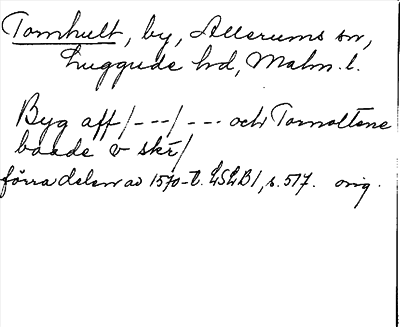 Tomhult, by, Allerums sn,
Luggude hd, Malm. l.
Byg aff /---/ --- och Tornoltene
baade v skr/
förra delen av 1570-t. LSLB1, s. 517. orig.